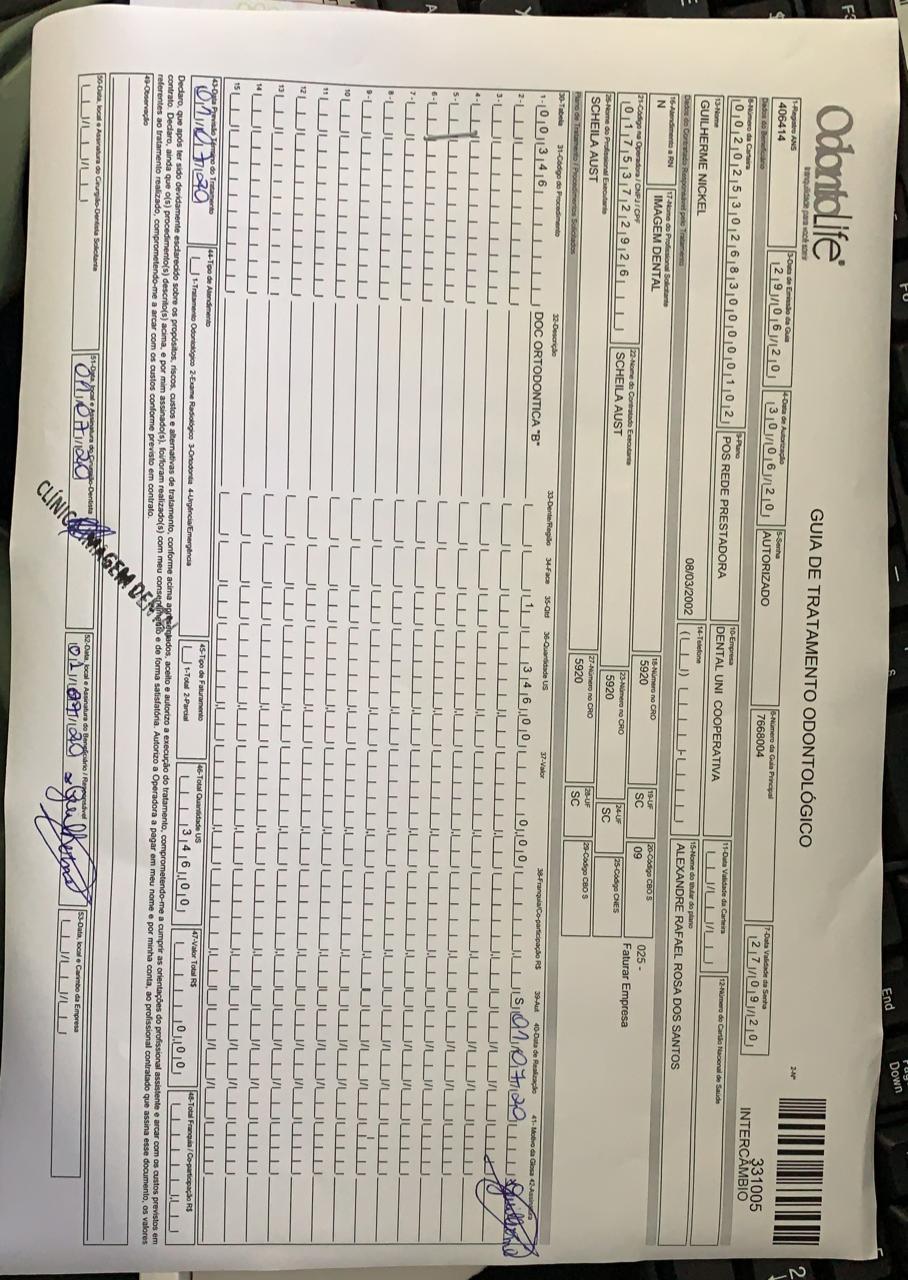 OdontoLife®
tranquilidade para você sorrir
GUIA DE TRATAMENTO ODONTOLÓGICO
2-Nº
331005
INTERCÂMBIO
1-Registro ANS
406414
3-Data de Emissão da Guia
29/06/20
4-Data de Autorização
30/06/20
5-Senha
AUTORIZADO
6-Número da Guia Principal
7668004
7-Data Validade da Senha
27/09/20
Dados do Beneficiário
8-Número da Carteira
00202530268300000102
9-Plano
POS REDE PRESTADORA
10-Empresa
DENTAL UNI COOPERATIVA
11-Data Validade da Carteira
12-Número do Cartão Nacional de Saúde
13-Nome
GUILHERME NICKEL
08/03/2002
14-Telefone
15-Nome do titular do plano
ALEXANDRE RAFAEL ROSA DOS SANTOS
Dados do Contratado Responsável pelo Tratamento
16-Atendimento a RN
N
17-Nome do Profissional Solicitante
IMAGEM DENTAL
18-Número no CRO
5920
19-UF
SC
20-Código CBO S
09
025 -
Faturar Empresa
21-Código na Operadora / CNPJ / CPF
01753722926
22-Nome do Contratado Executante
SCHEILA AUST
23-Número no CRO
5920
24-UF
SC
25-Código CNES
26-Nome do Profissional Executante
SCHEILA AUST
27-Número no CRO
5920
28-UF
SC
29-Código CBO S
Plano de Tratamento / Procedimentos Solicitados
30-Tabela 31-Código do Procedimento 32-Descrição 33-Dente/Região 34-Face 35-Qtd 36-Quantidade US 37-Valor 38-Franquia/Co-participação R$ 39-Aut 40-Data de Realização 41-Motivo da Glosa 42-Assinatura
1- 003346 DOC ORTODONTICA "B" 1 346,00 0,00 S 01/07/20 Guilherme
2-
3-
4-
5-
6-
7-
8-
9-
10
11
12
13
14
15
43-Data Previsão Término do Tratamento
01/07/20
44-Tipo de Atendimento
1-Tratamento Odontológico 2-Exame Radiológico 3-Ortodontia 4-Urgência/Emergência
45-Tipo de Faturamento
1-Total 2-Parcial
46-Total Quantidade US
346,00
47-Valor Total R$
0,00
48-Total Franquia / Co-participação R$
Declaro, que após ter sido devidamente esclarecido sobre os propósitos, riscos, custos e alternativas de tratamento, conforme acima apresentados, aceito e autorizo a execução do tratamento, comprometendo-me a cumprir as orientações do profissional assistente e arcar com os custos previstos em
contrato. Declaro, ainda que o(s) procedimento(s) descrito(s) acima, e por mim assinado(s), foi/foram realizado(s) com meu consentimento e de forma satisfatória. Autorizo a Operadora a pagar em meu nome e por minha conta, ao profissional contratado que assina esse documento, os valores
referentes ao tratamento realizado, comprometendo-me a arcar com os custos conforme previsto em contrato.
49-Observação
50-Data, local e Assinatura do Cirurgião-Dentista Solicitante
51-Data, local e Assinatura do Cirurgião-Dentista
01/07/20
CLÍNICA IMAGEM DENTAL
52-Data, local e Assinatura do Beneficiário / Responsável
01/07/20 Guilherme
53-Data, local e Carimbo da Empresa
End
Down